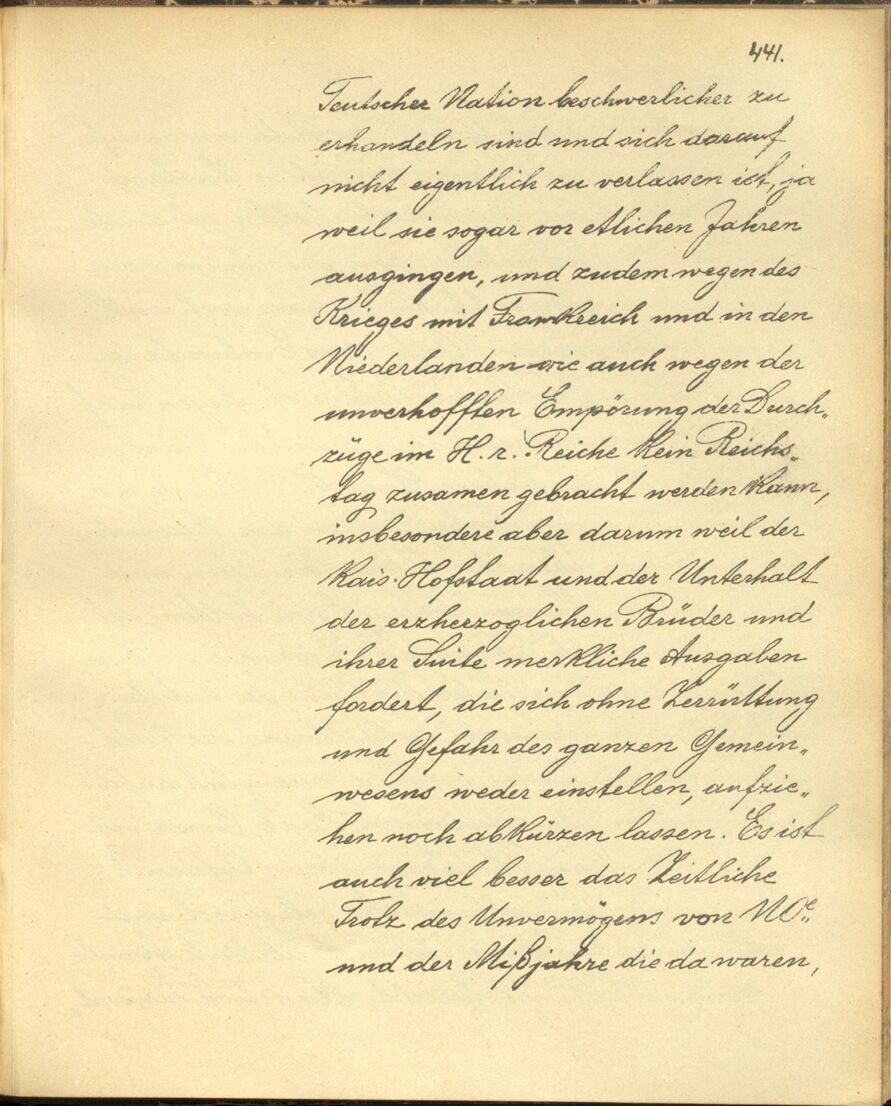 441.
Teutscher Nation beschwerlicher zu
erhandeln sind und sich darauf
nicht eigentlich zu verlassen ist, ja
weil sie sogar vor etlichen Jahren
ausgingen, und zudem wegen des
Krieges mit Frankreich und in den
Niederlanden wie auch wegen der
unverhofften Empörung der Durch„
züge im H. r. Reiche kein Reichs„
tag zusamen gebracht werden kann,
insbesondere aber darum weil der
Kais. Hofstaat und der Unterhalt
der erzherzoglichen Brüder und
ihrer Suite merkliche Ausgaben
fordert, die sich ohne Zerrüttung
und Gefahr des ganzen Gemein„
wesens weder einstellen, aufzie„
hen noch abkürzen lassen. Es ist
auch viel besser das Zeitliche
Trotz des Unvermögens von NOe.
und der Mißjahre die da waren,